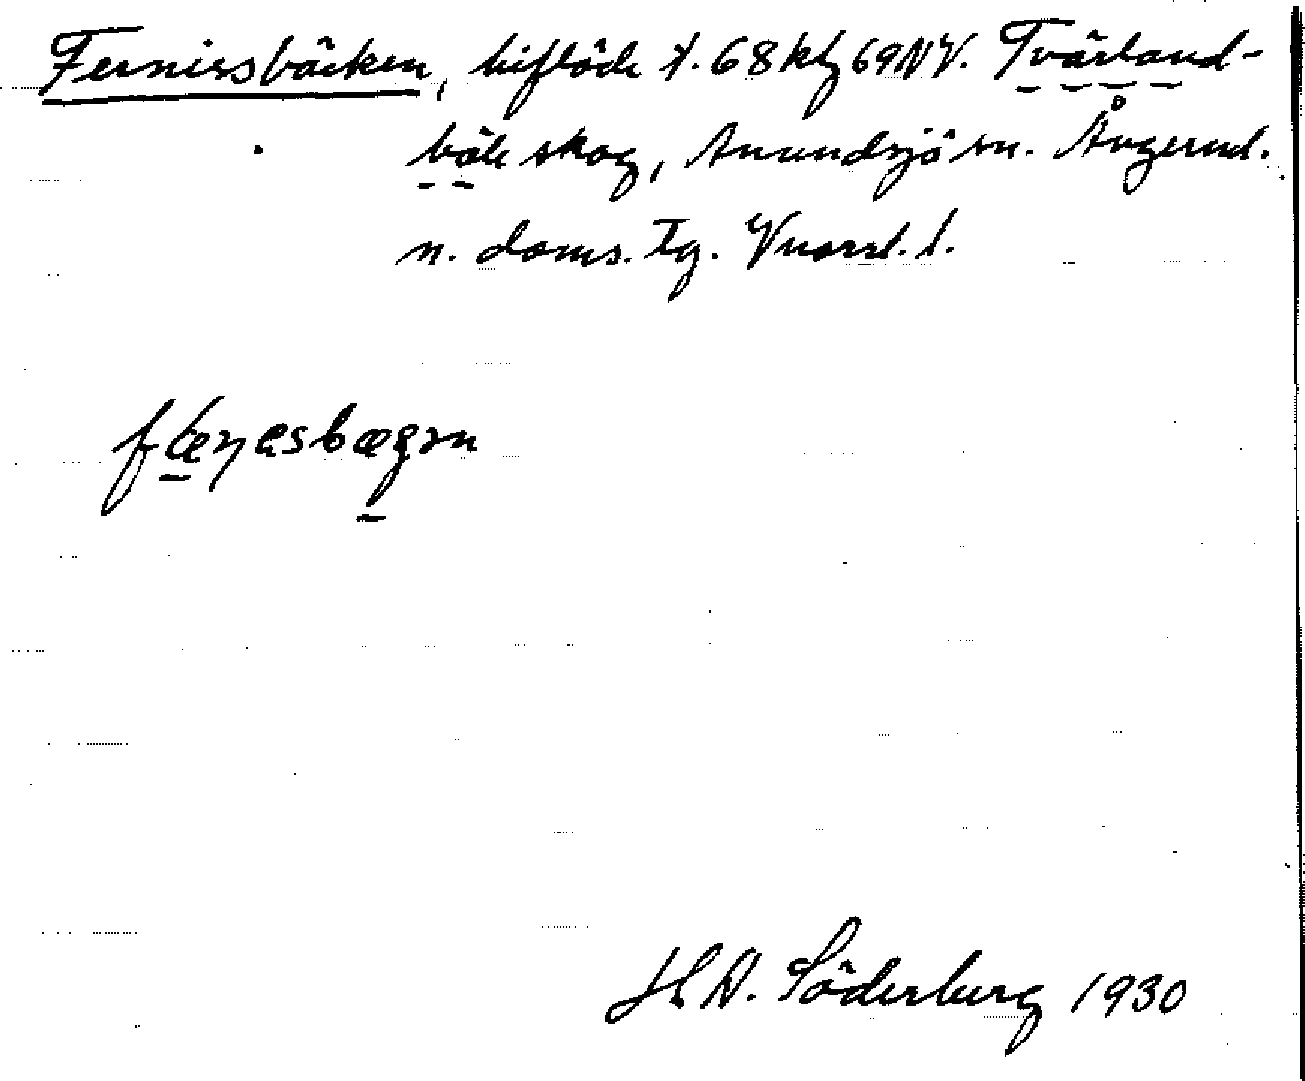 Fernissbäcken, biflöde t. 68 kbl 69 NV. Tvärland-
bäck skog, Anundsjö sn. Ångerml.
n. doms. Tg.
fæṇesbægən
H. D. Söderberg 1930